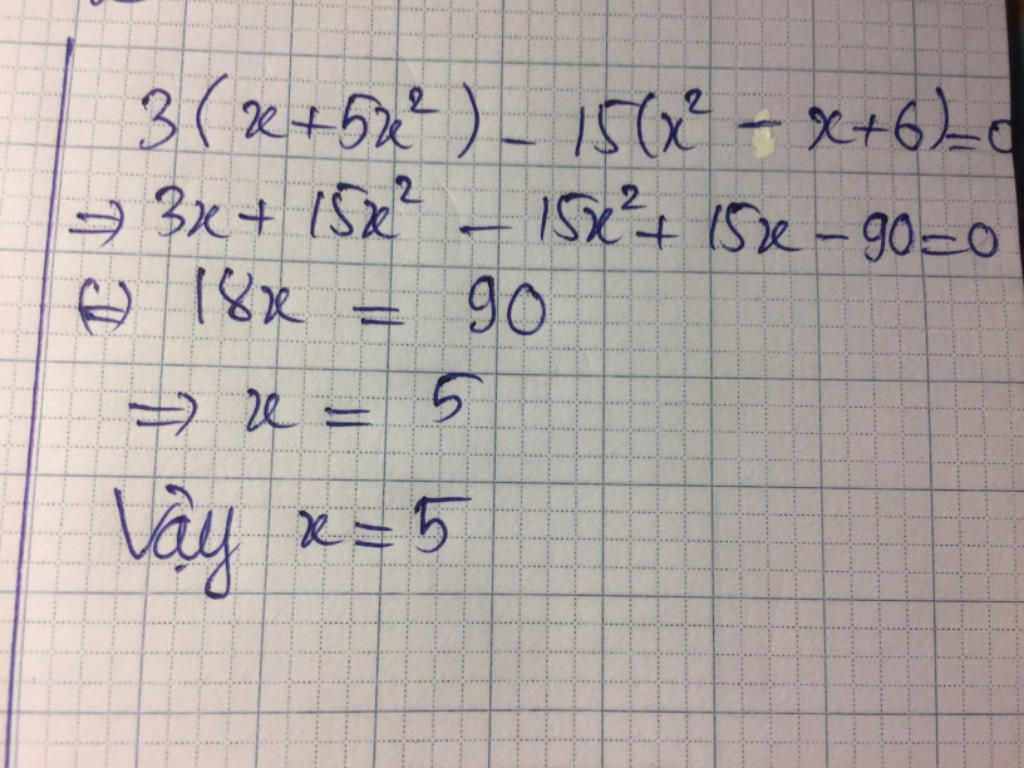 3(x+5x²) - 15(x² - x+6)=0
⇒ 3x + 15x² - 15x² + 15x - 90=0
⇔ 18x = 90
⇒ x = 5
Vậy x = 5